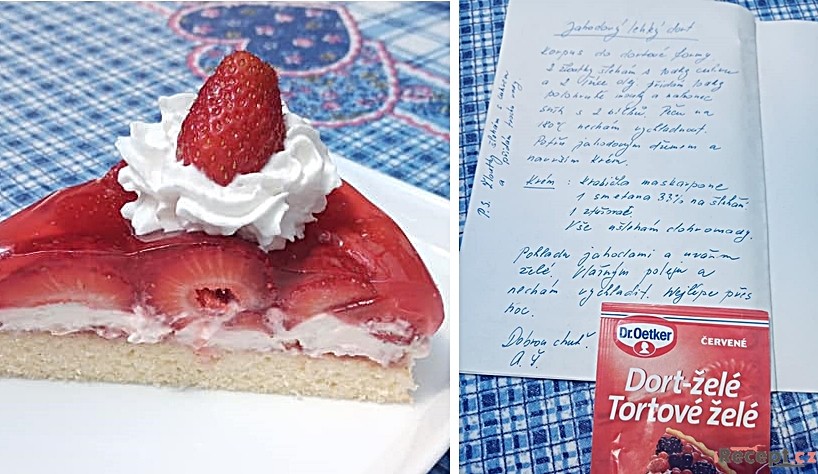 Jahodový lehký dort
korpus do dortové formy
2 žloutky šlehám s cukru
a 2 lžíce olej přidám
polohrubé mouky a nakonec
sníh z 2 bílků. Peču na
180°C nechám vychladnout.
Potřu jahodovým džemem a
navrším krém.
Krém: krabička maskarpone
1 smetana 33% na šlehání
1 ztužovač
Vše ušlehám dohromady.
Pokladu jahodami a uvařím
želé. Vlažným poleju a
nechám vychladit. Nejlépe přes
noc.
Dobrou chuť!
P.S. žloutky šlehám s cukrem
a trochu vody
Dr.Oetker
ČERVENÉ
Dort-želé
Tortové želé
Recept.cz